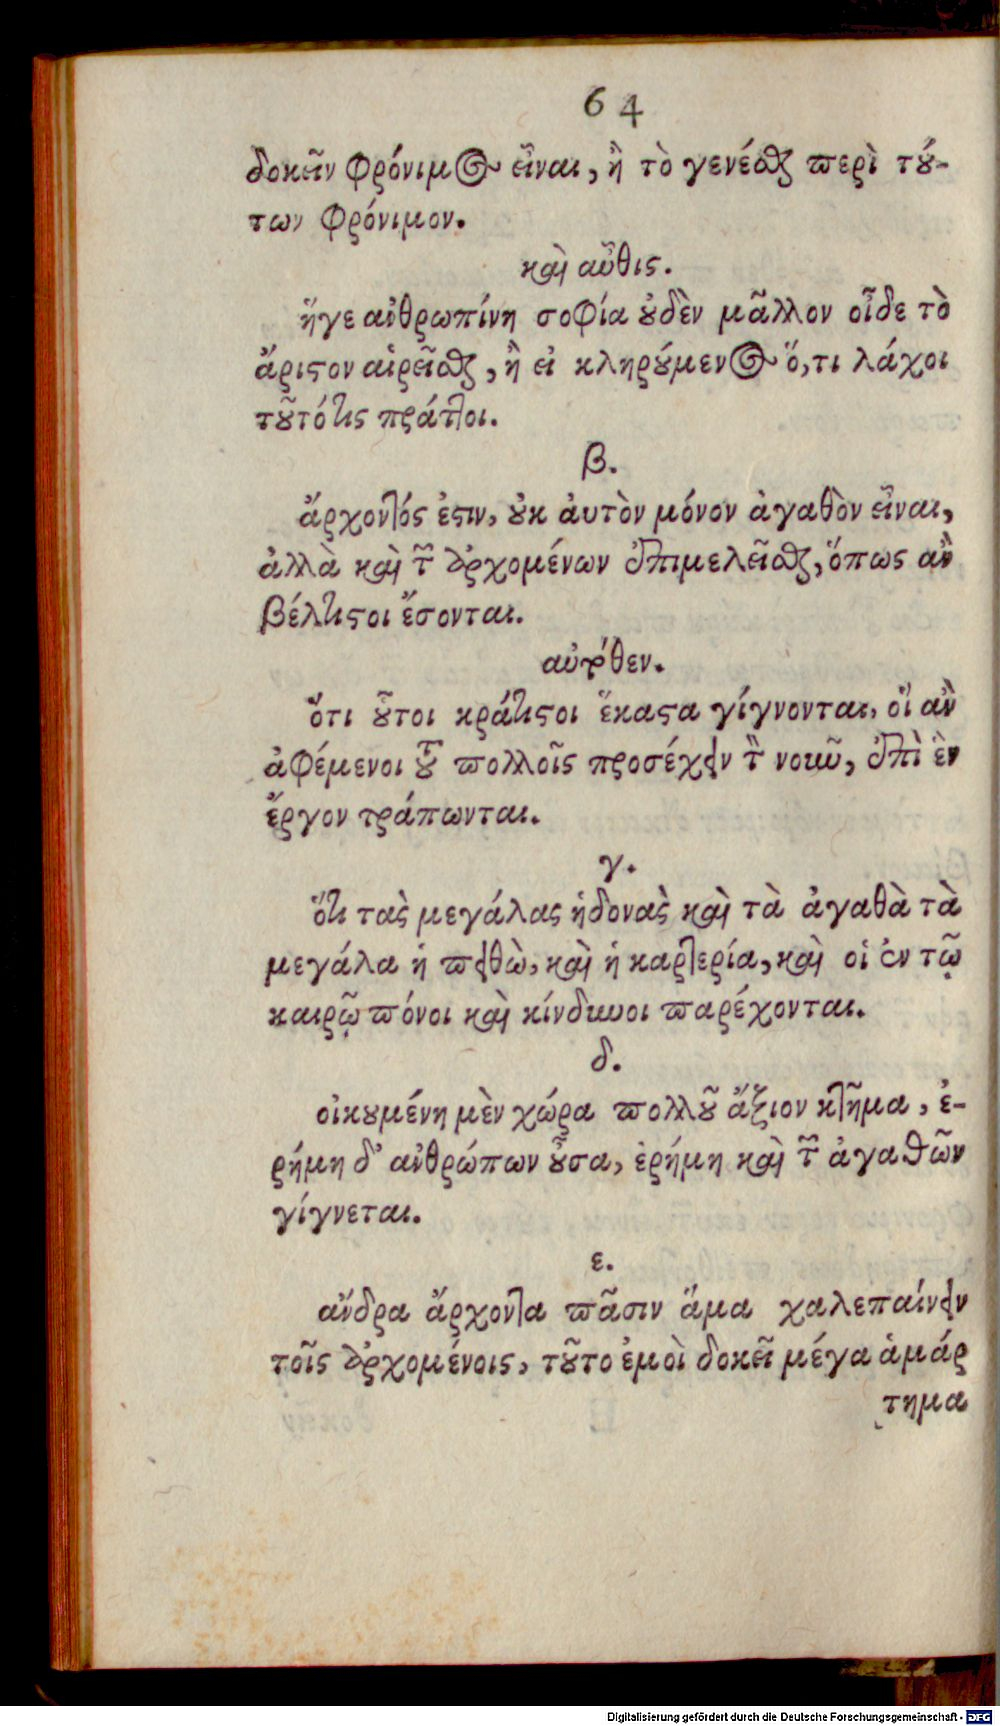 64
δοκεῖν φρόνιμος εἶναι, ἢ τὸ γενέσθαι περὶ τού-
των φρόνιμον.
καὶ αὖθις.
ἥγε ἀνθρωπίνη σοφία οὐδὲν μᾶλλον οἶδε τὸ
ἄριστον αἱρεῖσθαι, ἢ εἰ κληρούμενος ὅ,τι λάχοι
τοῦτό τις πράττοι.
β.
ἄρχοντός ἐστιν, οὐκ αὐτὸν μόνον ἀγαθὸν εἶναι,
ἀλλὰ καὶ τῶν ἀρχομένων ἐπιμελεῖσθαι, ὅπως ἂν
βέλτιστοι ἔσονται.
αὐτόθεν.
ὅτι οὗτοι κράτιστοι ἕκαστα γίγνονται, οἳ ἂν
ἀφέμενοι τοῦ πολλοῖς προσέχειν τὸν νοῦν, ἐπὶ ἓν
ἔργον τράπωνται.
γ.
ὅτι τὰς μεγάλας ἡδονὰς καὶ τὰ ἀγαθὰ τὰ
μεγάλα ἡ πειθὼ, καὶ ἡ καρτερία, καὶ οἱ ἐν τῷ
καιρῷ πόνοι καὶ κίνδυνοι παρέχονται.
δ.
οἰκουμένη μὲν χώρα πολλοῦ ἄξιον κτῆμα, ἐ-
ρήμη δ' ἀνθρώπων οὖσα, ἐρήμη καὶ τῶν ἀγαθῶν
γίγνεται.
ε.
ἄνδρα ἄρχοντα πᾶσιν ἅμα χαλεπαίνειν
τοῖς ἀρχομένοις, τοῦτο ἐμοὶ δοκεῖ μέγα ἁμάρ
τημα
Digitalisierung gefördert durch die Deutsche Forschungsgemeinschaft - DFG